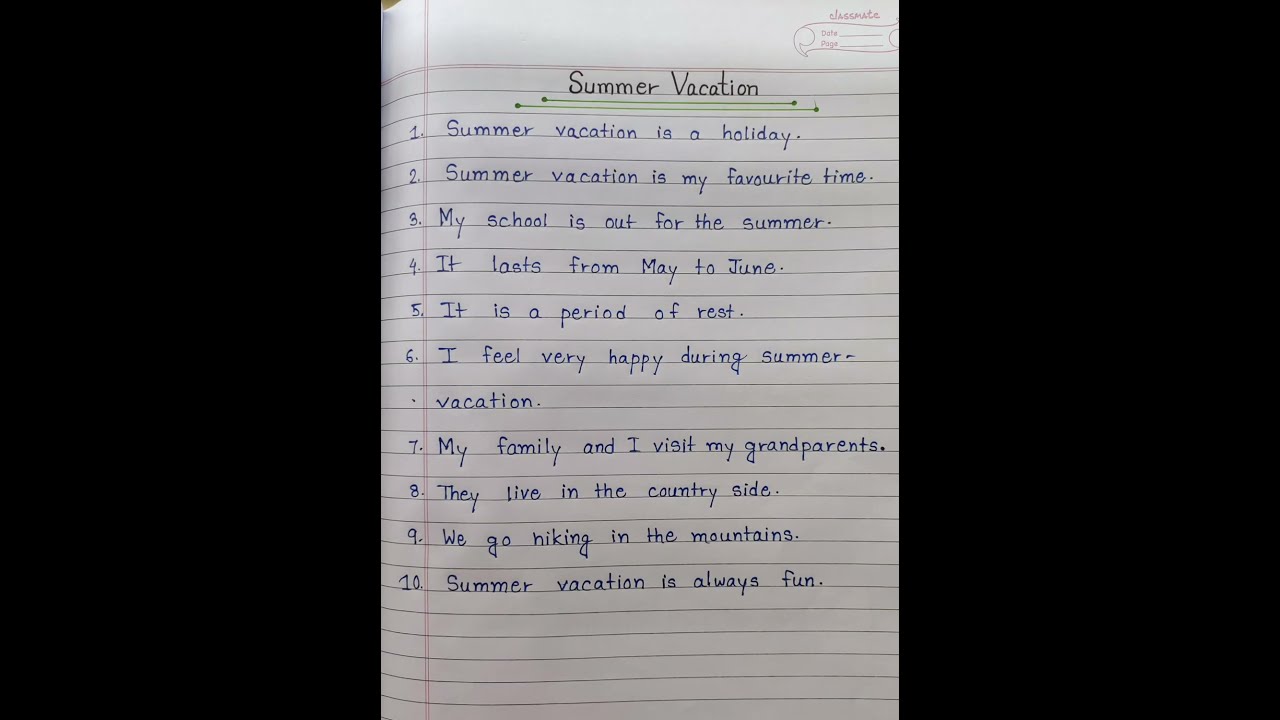 classmate
Date
Page
Summer Vacation
1. Summer vacation is a holiday.
2. Summer vacation is my favourite time.
3. My school is out for the summer.
4. It lasts from May to June.
5. It is a period of rest.
6. I feel very happy during summer-
vacation.
7. My family and I visit my grandparents.
8. They live in the country side.
9. We go hiking in the mountains.
10. Summer vacation is always fun.